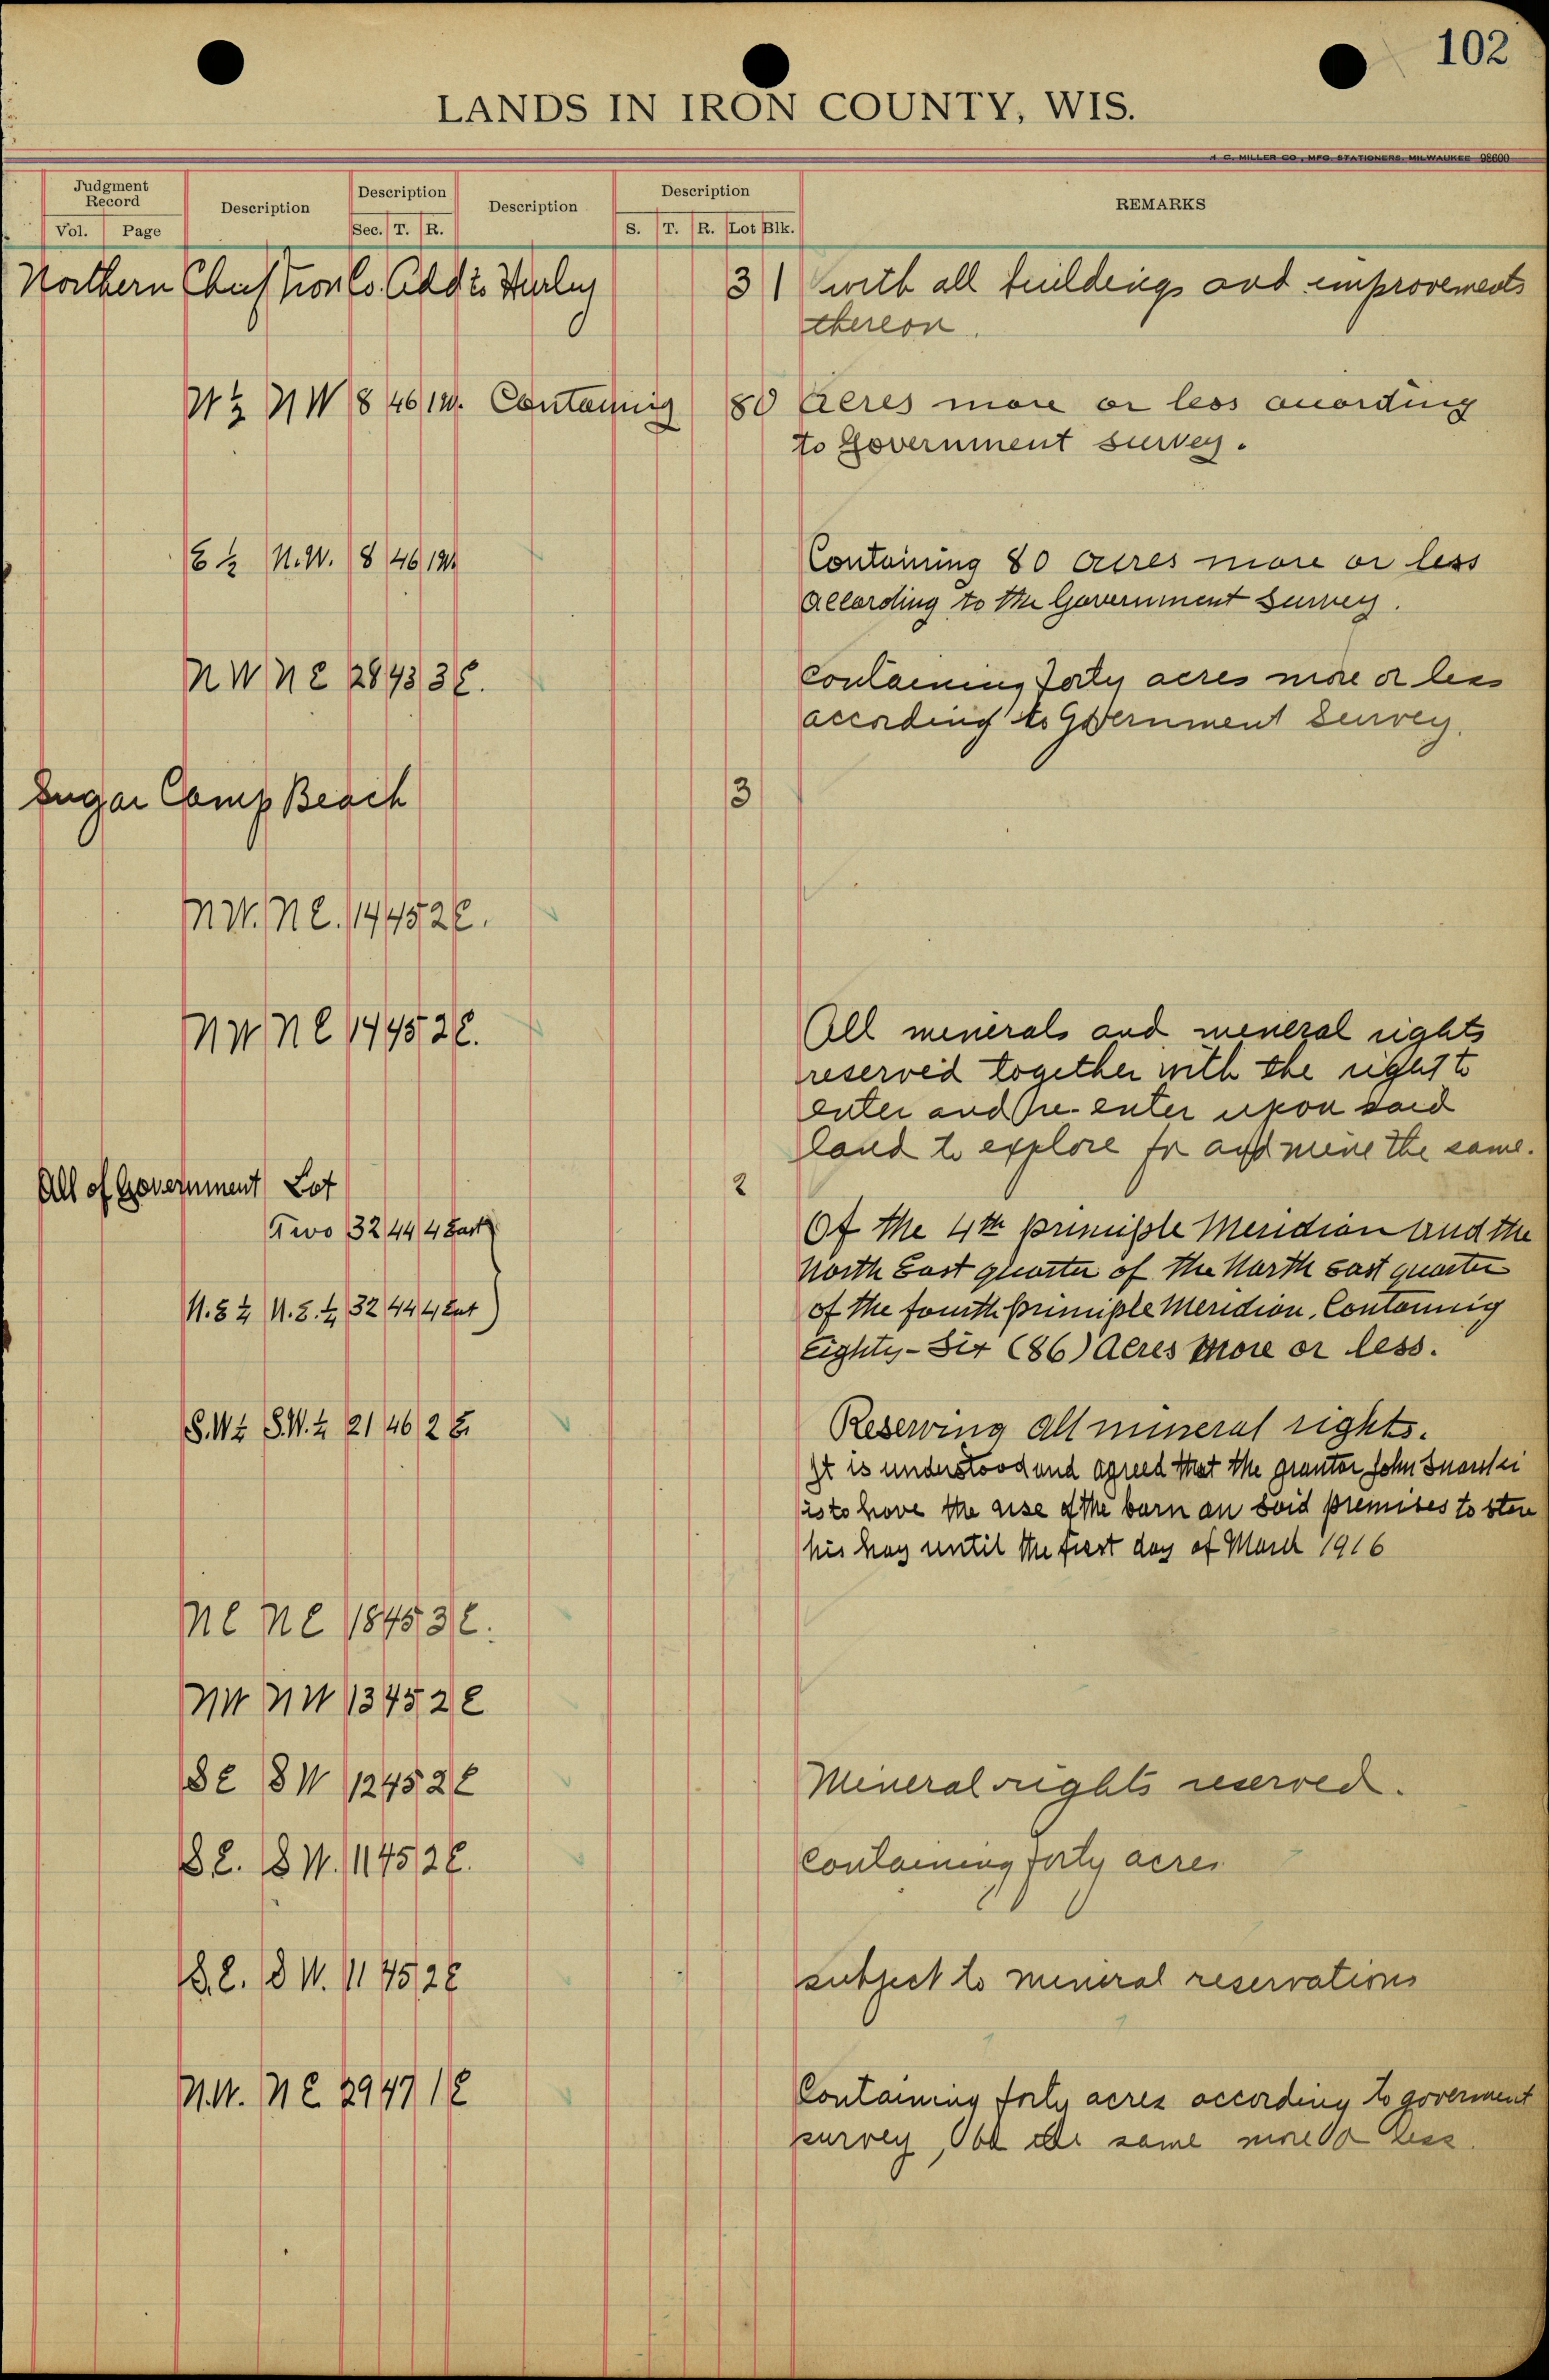 102
LANDS IN IRON COUNTY, WIS.
A. C. MILLER CO., MFG. STATIONERS, MILWAUKEE 98600
Judgment Record Description Description Description Description REMARKS
Vol. Page Sec. T. R. S. T. R. Lot Blk.
Northern Chief Iron Co. Add to Hurley 3 1 with all buildings and improvements
thereon.
W½ NW 8 46 1W. Containing 80 Acres more or less according
to Government survey.
E ½ N.W. 8 46 1W Containing 80 acres more or less
according to the Government survey.
NW NE 28 43 3E. containing forty acres more or less
according to Government Survey.
Sugar Camp Beach 3
NW. NE. 14 45 2E.
NW NE 14 45 2E. All minerals and mineral rights
reserved together with the right to
enter and re-enter upon said
land to explore for and mine the same.
All of Government Lot 2
Two 32 44 4 East Of the 4th principle Meridian and the
North East quarter of the North east quarter
N.E ¼ N.E. ¼ 32 44 4 East of the fourth principle Meridian, Containing
Eighty-Six (86) Acres more or less.
S.W¼ S.W.¼ 21 46 2 E. Reserving all mineral rights.
It is understood and agreed that the grantor John
is to have the use of the barn on said premises to store
his hay until the first day of March 1916
NE NE 18 45 3E.
NW NW 13 45 2E
SE SW 12 45 2E Mineral rights reserved.
SE. SW. 11 45 2E. Containing forty acres
S.E. SW. 11 45 2E subject to mineral reservations
N.W. NE 29 47 1E Containing forty acres according to goverment
survey, be the same more or less.